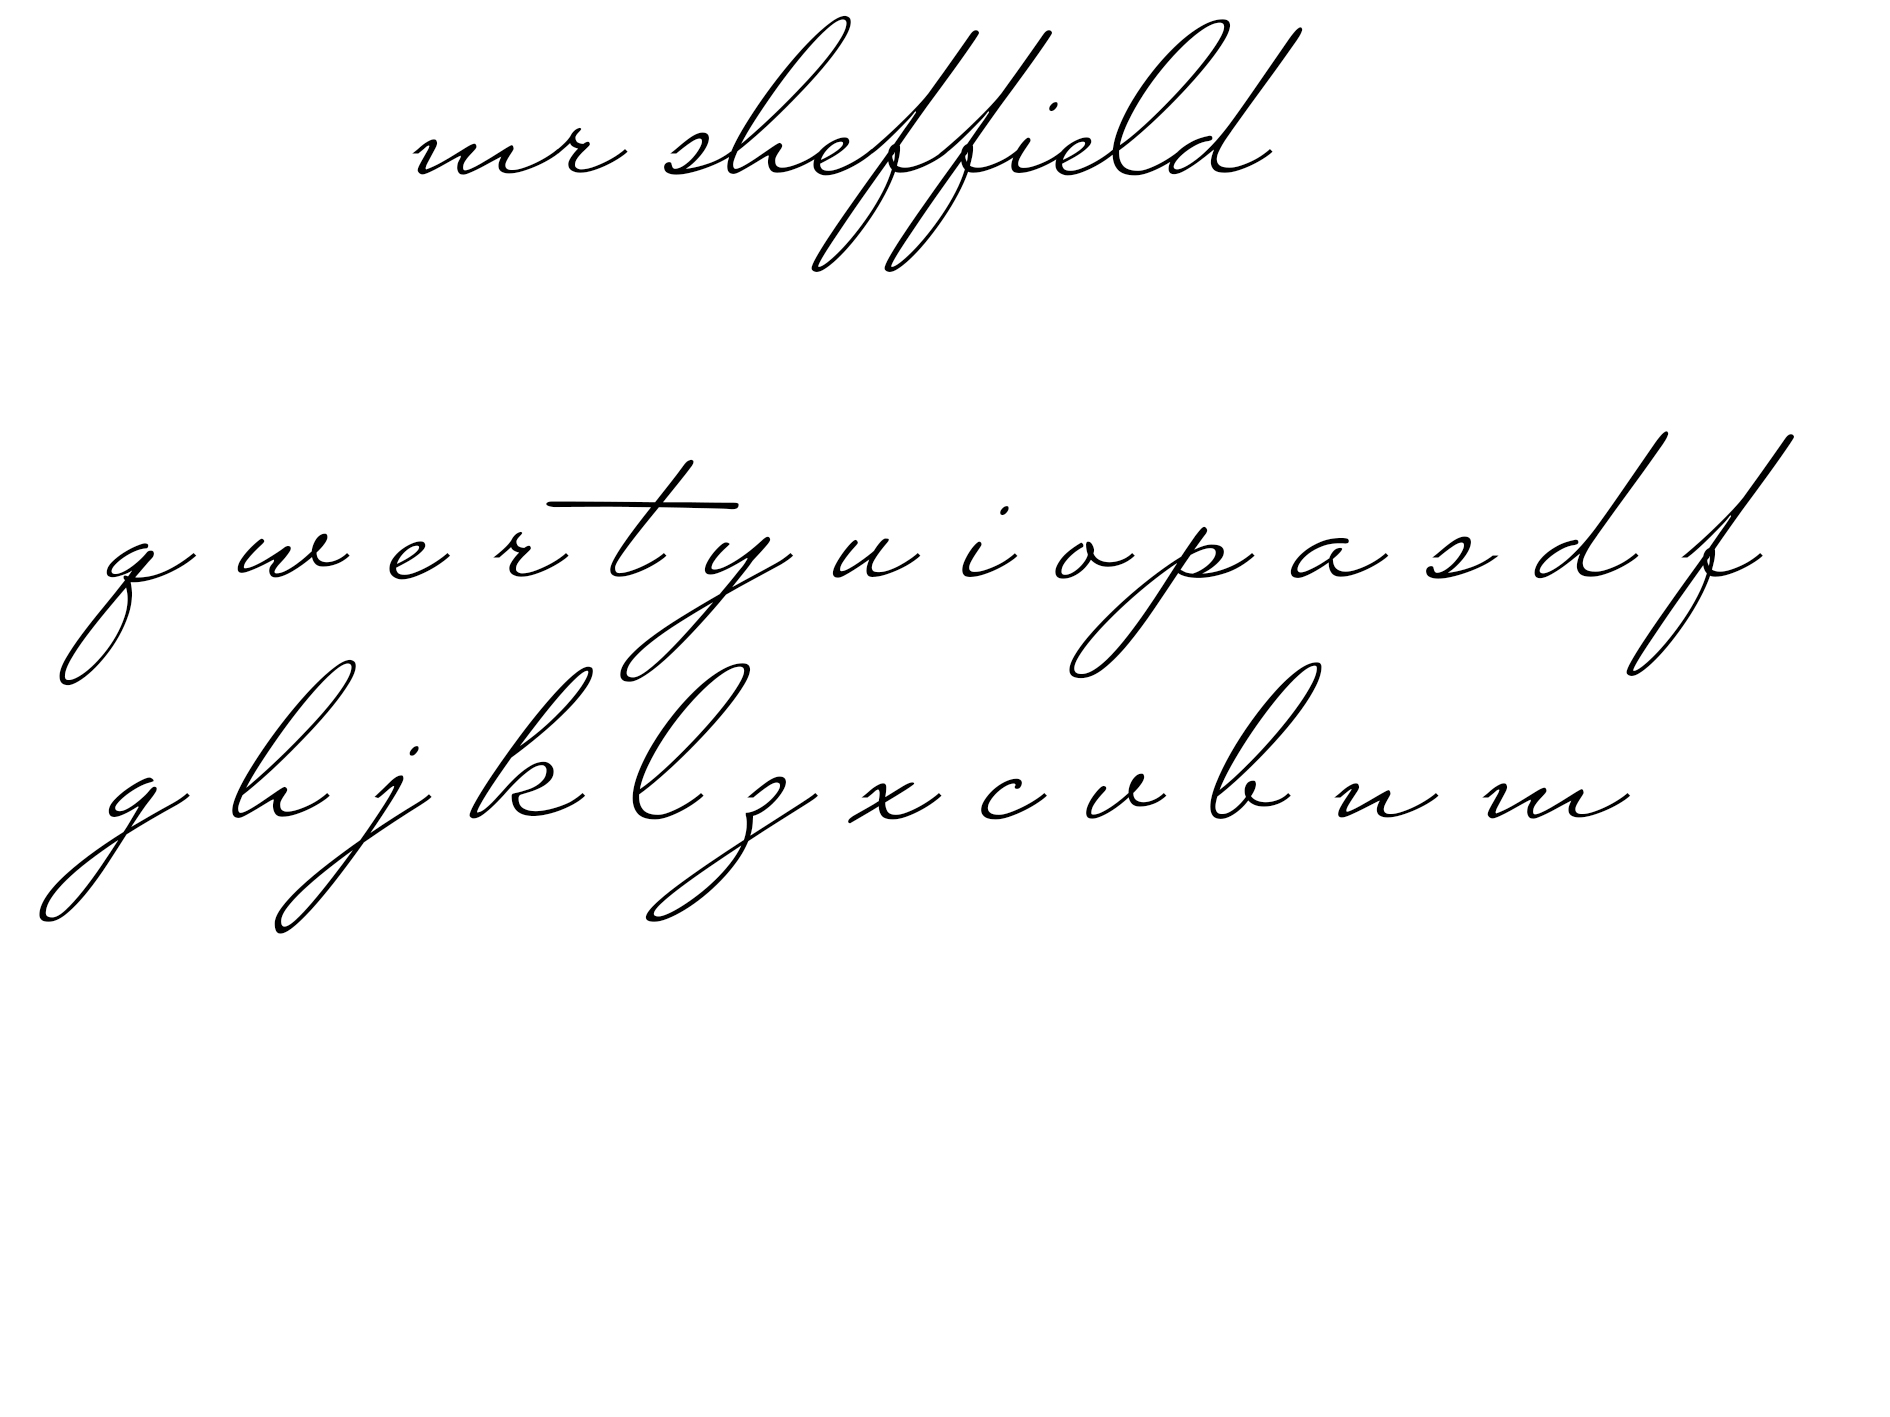 mr sheffield
q w e r t y u i o p a s d f
g h j k l z x c v b n m